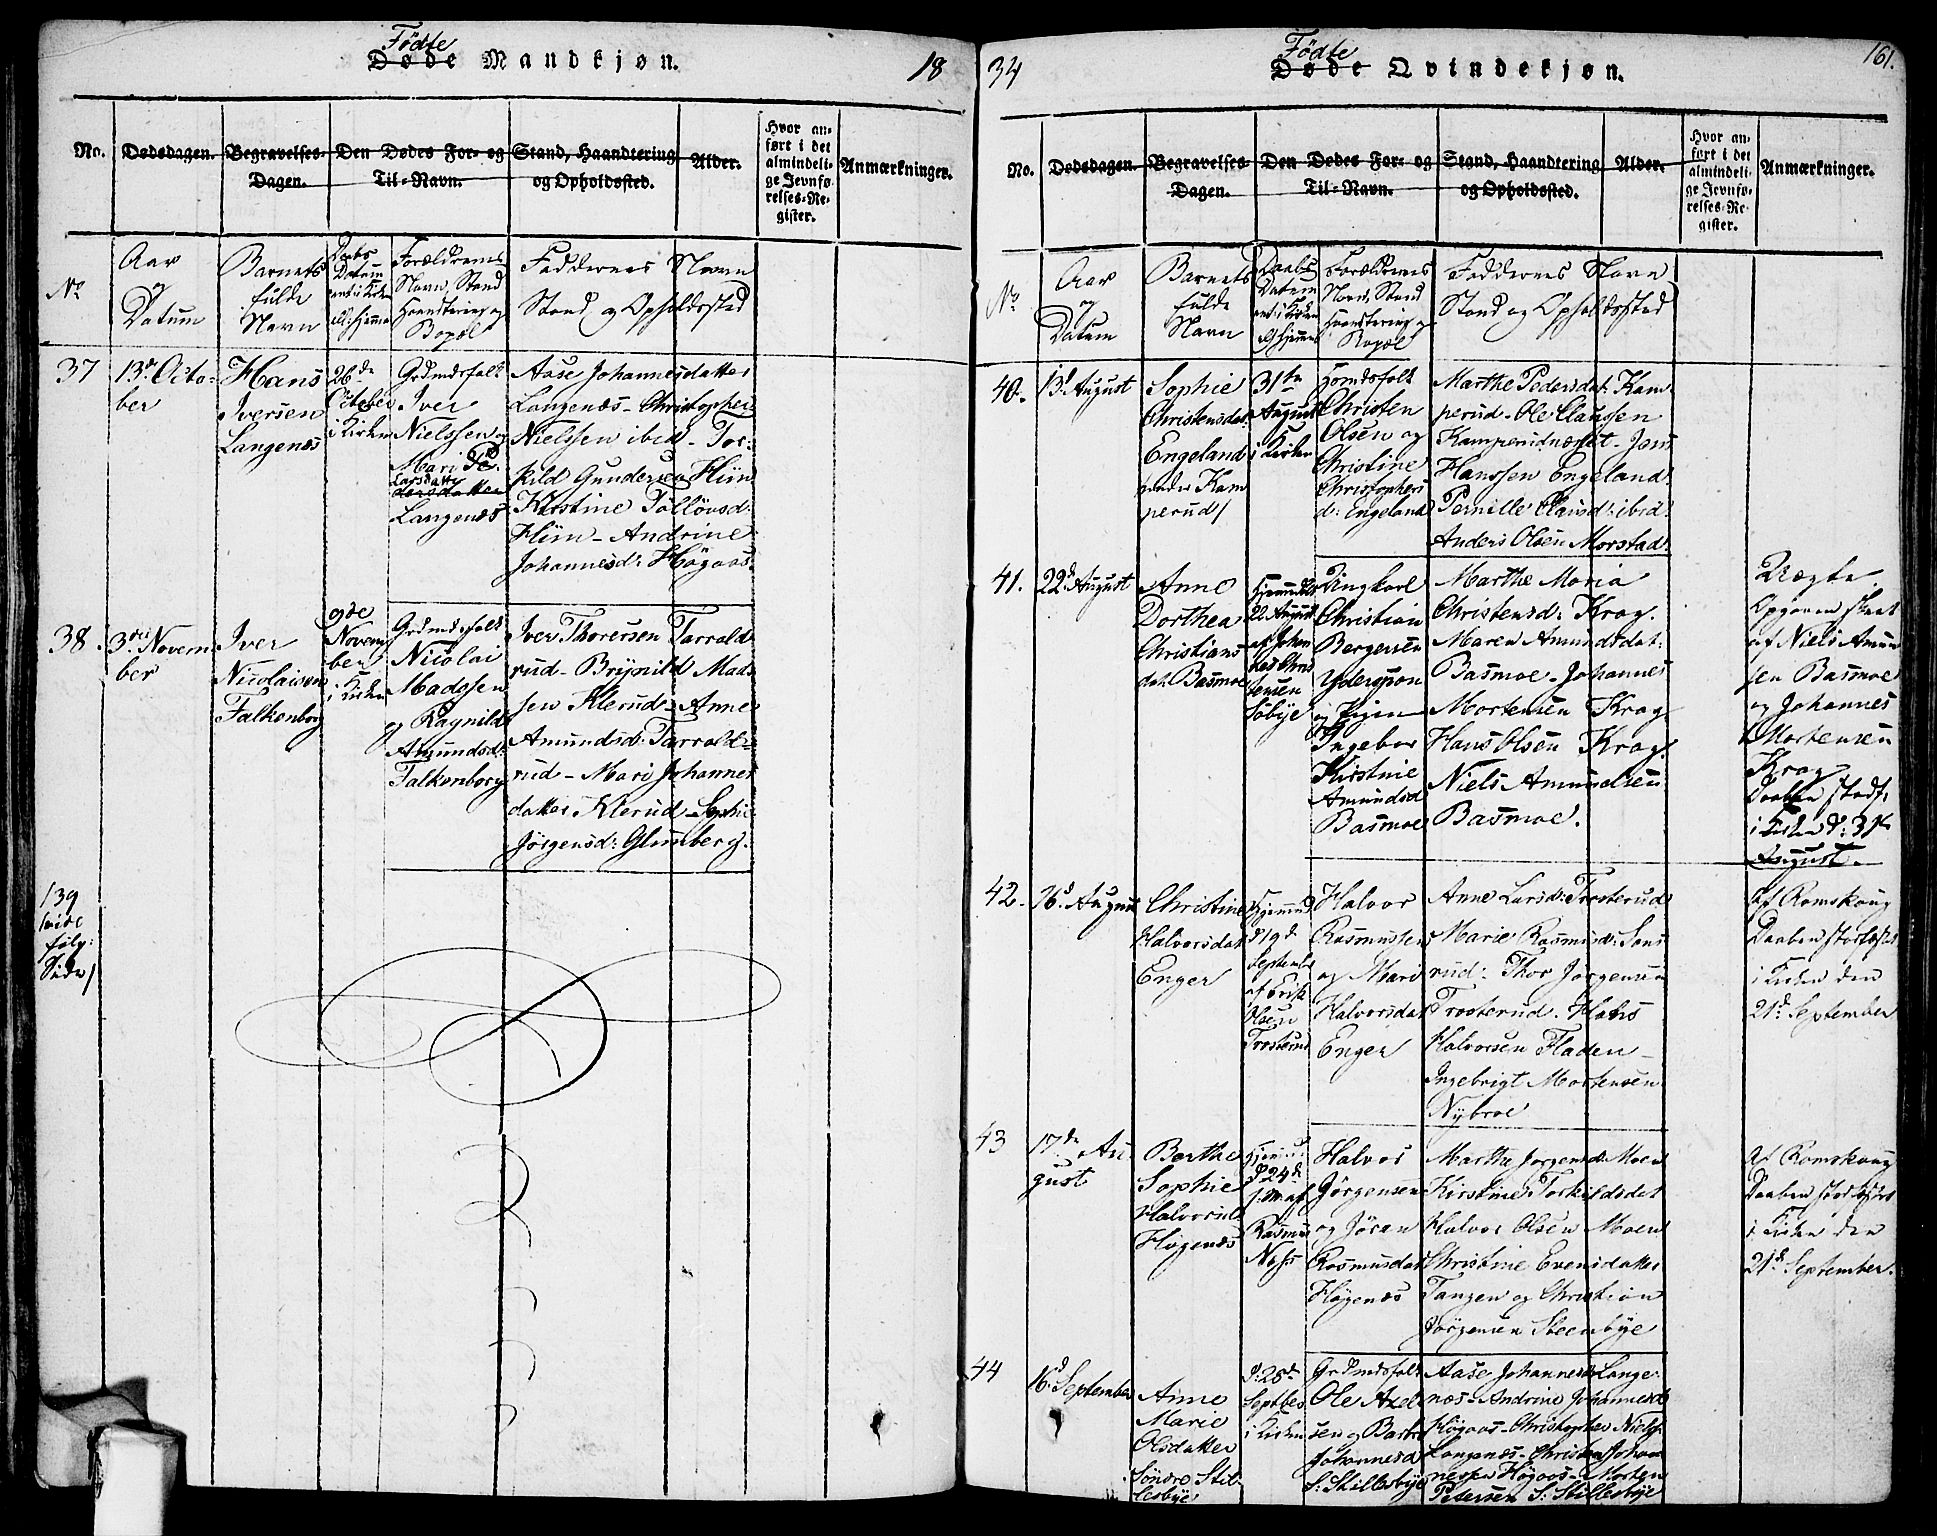 Fødte
Døde Mandkjøn.
18
No.
Dødsdagen.
Begravelses-
Dagen.
Den Dødes For- og
Til-Navn.
Stand, Haandtering
og Opholdssted.
Alder.
Hvor an-
ført i det
almindeli-
ge Jevnfø-
relses-Re-
gister.
Anmærkninger.
No
Aar
og
Datum
Barnets
fulde
Navn
Daabs
Datum
Forældrenes
Navn, Stand
Haandtering og
Bopæl
Faddernes Navn
Stand og Opholdssted
37
13de Octo-
ber
Hans
Iversen
Langenæs
26de
October
i Kirken
Grdmdsfolk
Iver
Nielssen og
Mari Pe-
Larsdatter
dersdatter
Langenæs
Aase Johannesdatter
Langenæs - Christopher
Nielssen ibid - Tor-
kild Gundersen Hiin
Kirstine Tollovsd:
Hiin - Andrine
Johannesd: Högaas
38.
3die Novem
ber
Iver
Nicolaisen
Falkenborg
9de
Novem
ber
i Kirken
Grdmdsfolk
Nicolai
Madssen
og Ragnild
Amundsd:
Falkenborg
Iver Thorersen Tarrald
rud - Brÿnild Mads
sen Klerud - Anne
Amundsd: Tarrald-
rud - Mari Johannes
datter Klerud - Sophie
Jörgensd: Glimberg.
139
vide
følg:
Side/
34
Fødte
Døde Qvindekjøn.
161.
No.
Dødsdagen.
Begravelses-
Dagen.
Den Dødes For- og
Til-Navn.
Stand, Haandtering
og Opholdssted.
Alder.
Hvor an-
ført i det
almindeli-
ge Jevnfø-
relses-Re-
gister.
Anmærkninger.
No
Aar
og
Datum
Barnets
fulde
Navn
Daabs
Datum
Forældrenes
Navn, Stand
Haandtering og
Bopæl
Faddernes Navn
Stand og Opholdssted
40.
13d August
Sophie
Christensdat
Engeland
under Kam
perud/
31te
August
i Kirken
Christen
Olsen og
Christine
Christophers
d: Engeland
Marthe Pedersdat: Kam
perud - Ole Clausen
Kamperudnæset - Jens
Hanssen Engeland.
Pernille Clausd: ibid:
Anders Olsen Morstad:
41.
22d August
Anne
Dorthea
Christians
dat Basmoe
Hjemmedöbt
22 August
af Johan
nes Chris
tensen
Söbÿe
Ungkarl
Christian
Bergersen
Yderspon
og Pigen
Ingebor
Kirstine
Amundsd
Basmoe
Marthe Maria
Christensd: Krog.
Maren Amundsdat:
Basmoe - Johannes
Mortensen Krog.
Hans Olsen Krog.
Niels Amundsen
Basmoe.
Uægte.
Opgaven skeet
af Niels Amun
sen Basmoe
og Johannes
Mortensen
Krog
Daaben stadf:
i Kirken d: 31te
August.
42.
26d August
Christine
Halvorsdat
Enger
Hjemmed
d 19d
September
af Erik
Olsen
Trosterud
Halvor
Rasmussen
og Mari
Halvorsdat
Enger
Anne Larsd: Trosterud
Marie Rasmusd: Sons
rud: Thor Jorgensen
Trosterud. Hans
Halvorsen Fladen -
Ingebrigt Mortensen
Nÿbroe
af Romskoug
Daaben stadfæstet
i Kirken den
21d September
43
17de Au-
gust
Berthe
Sophie
Halvorsd
Högenæs
Hjemmed.
d 24d
s.M. af
Rasmus
Næss
Halvor
Jörgensen
og Jöran
Rasmusdat
Högenæs
Marthe Jorgensd: Moen
Kirstine Torkildsdat
Halvor Olsen Moen
Christine Evensdatter
Tangen og Christian
Jörgensen Steenbÿe
af Romskoug
Daaben stadfæstet
i Kirken den
21d September.
44
16d September
Anne
Marie
Olsdatter
Söndre Stil-
lesbÿe
d: 28de
Septber
i Kirken
Grdmdsfolk
Ole Axel
sen og Barbro
Johannesd
S: Stillesbÿe
Aase Johannesd Lange-
næs - Andrine Johannesd
Högaas - Christopher Niels.
Langenæs - Christen Johan
nessen Högaas - Morten
Petersen S: Stillesbÿe